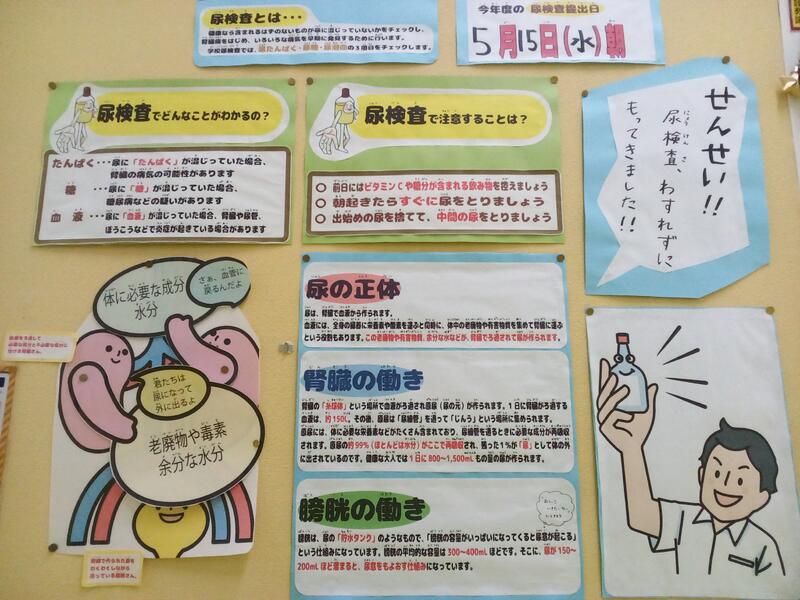 尿検査とは・・・
健康なら含まれるはずのないものが尿に混じっていないかをチェックし、
腎臓病をはじめ、いろいろな病気を早期に発見するために行います。
学校尿検査では、尿たんぱく・尿糖・尿潜血の3項目をチェックします。
今年度の 尿検査提出日
5月15日(水)朝
尿検査でどんなことがわかるの？
たんぱく・・・尿に「たんぱく」が混じっていた場合、
腎臓の病気の可能性があります
糖 ・・・尿に「糖」が混じっていた場合、
糖尿病などの疑いがあります
血 液 ・・・尿に「血液」が混じっていた場合、腎臓や尿管、
ぼうこうなどで炎症が起きている場合があります
尿検査で注意することは？
○ 前日にはビタミンCや糖分が含まれる飲み物を控えましょう
○ 朝起きたらすぐに尿をとりましょう
○ 出始めの尿を捨てて、中間の尿をとりましょう
せんせい!!
尿検査、わすれずに
もってきました!!
体に必要な成分
水分
さぁ、血管に
戻るんだよ
君たちは
尿になって
外に出るよ
老廃物や毒素
余分な水分
尿の正体
尿は、腎臓で血液から作られます。
血液には、全身の細胞に栄養素や酸素を運ぶと同時に、体中の老廃物や有害物質を集めて腎臓に運ぶ
という役割もあります。この老廃物や有害物質、余分な水などが、腎臓でろ過されて尿が作られます。
腎臓の働き
腎臓の「糸球体」という場所で血液がろ過され原尿（尿の元）が作られます。1日に腎臓がろ過する
血液は、約150L。その後、原尿は「尿細管」を通って「じんう」という場所に集められます。
原尿には、体に必要な栄養素などがたくさん含まれており、尿細管を通るときに必要な成分が再吸収
されます。原尿の約99%（ほとんどは水分）がここで再吸収され、残った1%が「尿」として体の外
に出されているのです。健康な大人では1日に800～1,500mLもの量の尿が作られます。
膀胱の働き
膀胱は、尿の「貯水タンク」のようなもので、「膀胱の容量がいっぱいになってくると尿意が起こる」
という仕組みになっています。膀胱の平均的な容量は300～400mLほどです。そこに、尿が150～
200mLほど溜まると、尿意をもよおす仕組みになっています。